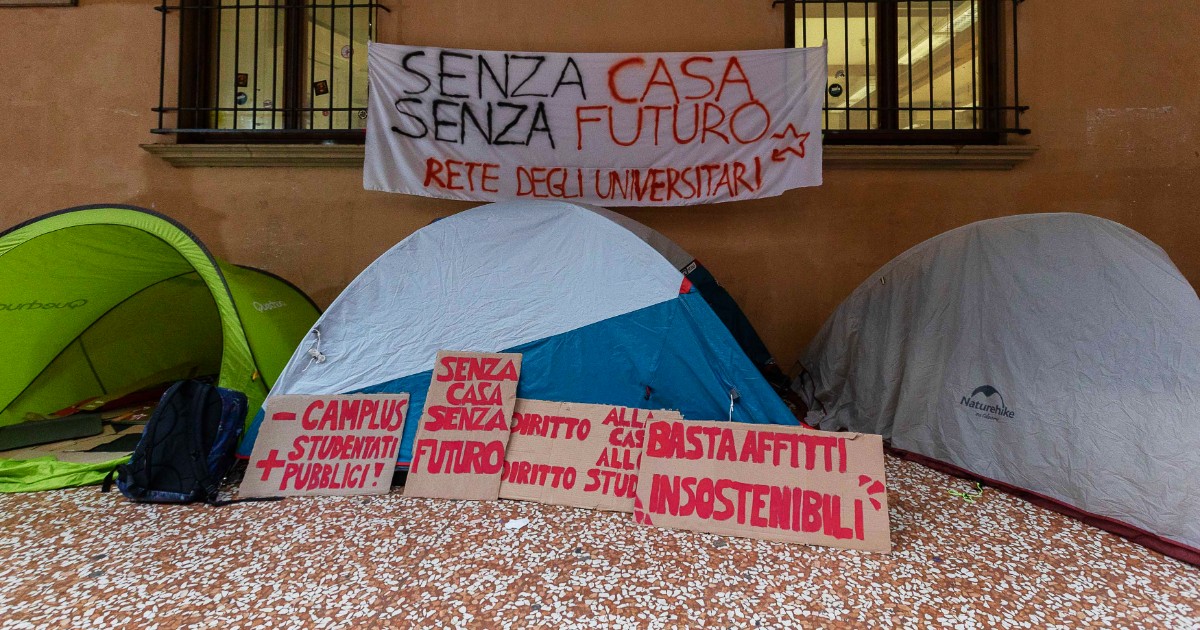 SENZA CASA
SENZA FUTURO
RETE DEGLI UNIVERSITARI
Quechua
Quechua
Naturehike
- CAMPLUS
STUDENTATI
+ PUBBLICI!
SENZA
CASA
SENZA
FUTURO
DIRITTO ALLA
CAS
ALLO
DIRITTO STUD
BASTA AFFITTI
INSOSTENIBILI